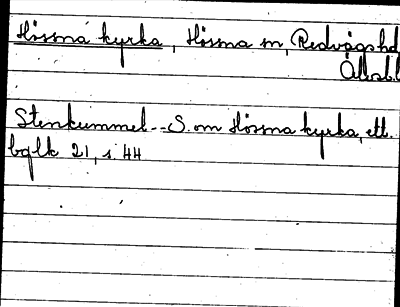 Hössna kyrka, Hössna sn, Redvägs hd
Älvsb.l
Stenkummel -- S. om Hössna kyrka, ett.
bglk 21, s. 44